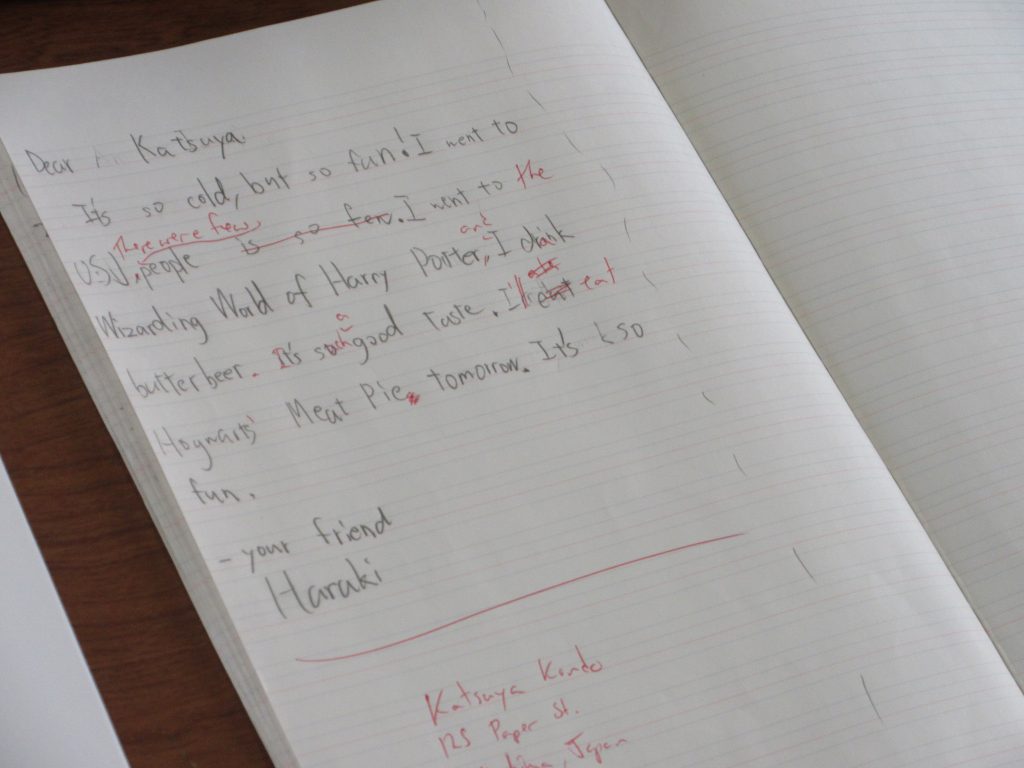 Dear Katsuya
It's so cold, but so fun! I went to
There were few the
USJ, people is so few. I went to
and
Wizarding World of Harry Porter, I drink
a
butterbeer. It's such good taste. I'll eat eat
Hogwarts' Meat Pie tomorrow. It's so
fun.
- your friend
Haraki
Katsuya Kondo
125 Paper St.
Japan